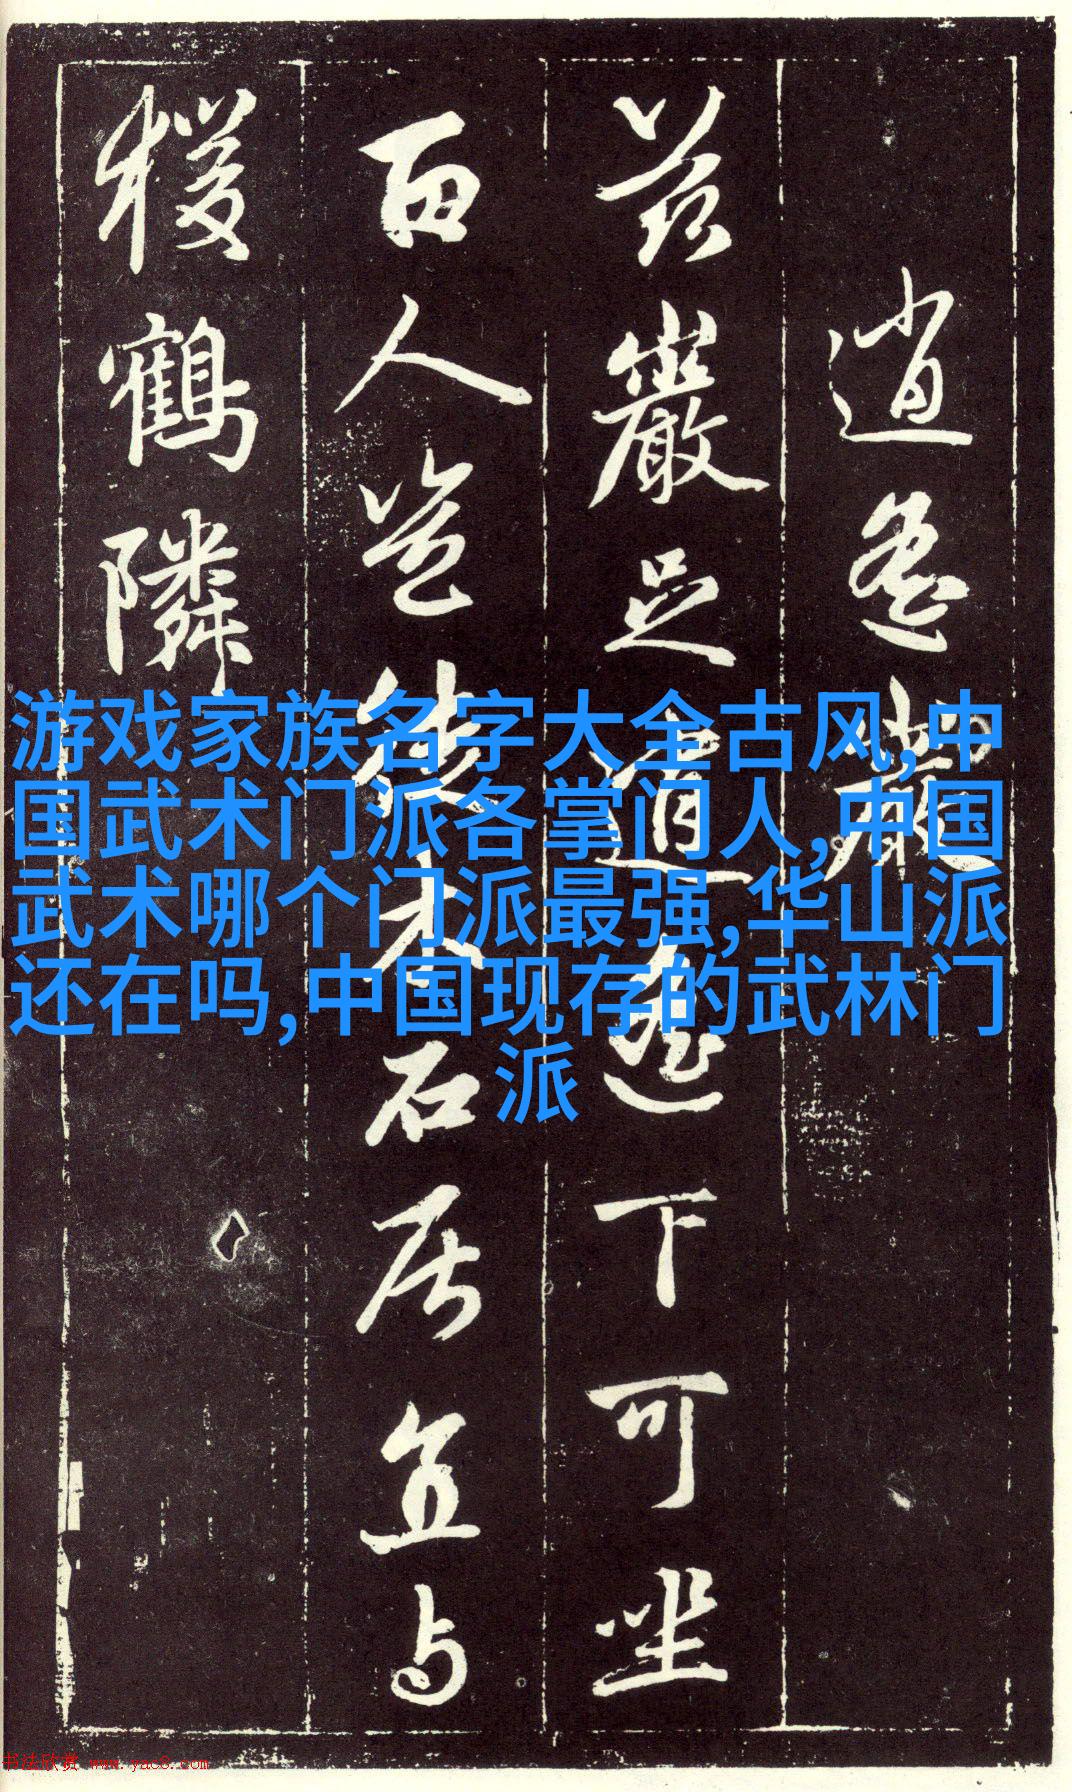 逍遙巖
茲巖足逍遙下可坐
百人豈徒木石居宜与
猨鶴隣
游戏家族名字大全古风,中
国武术门派各掌门人,中国
武术哪个门派最强,华山派
还在吗,中国现存的武林门
派
书法欣赏 www.yac8.com